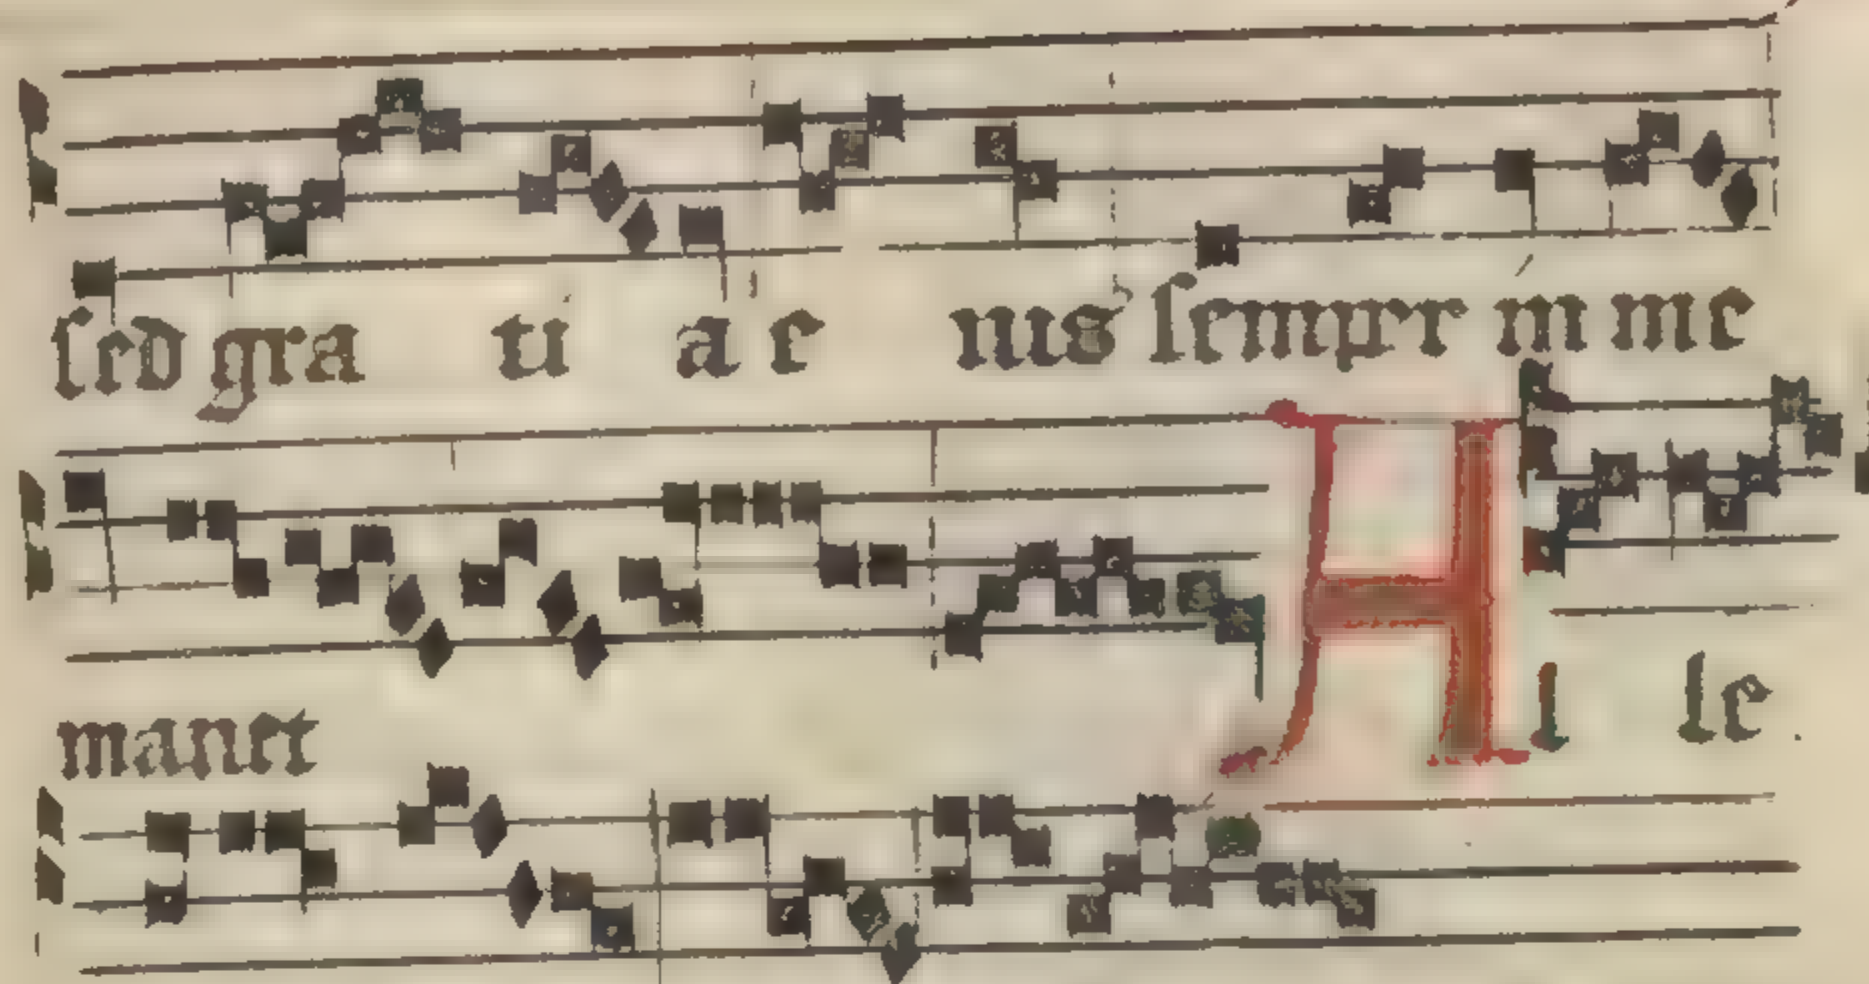 sed gra ti a e ius semper in me
manet Hi le